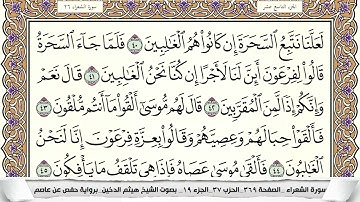 الجزء التاسع عشر
سورة الشعراء ٢٦
لَعَلَّنَا نَتَّبِعُ السَّحَرَةَ إِن كَانُوا هُمُ الْغَالِبِينَ ٤٠ فَلَمَّا جَاءَ السَّحَرَةُ
قَالُوا لِفِرْعَوْنَ أَئِنَّ لَنَا لَأَجْرًا إِن كُنَّا نَحْنُ الْغَالِبِينَ ٤١ قَالَ نَعَمْ
وَإِنَّكُمْ إِذًا لَّمِنَ الْمُقَرَّبِينَ ٤٢ قَالَ لَهُم مُّوسَىٰ أَلْقُوا مَا أَنتُم مُّلْقُونَ ٤٣
فَأَلْقَوْا حِبَالَهُمْ وَعِصِيَّهُمْ وَقَالُوا بِعِزَّةِ فِرْعَوْنَ إِنَّا لَنَحْنُ
الْغَالِبُونَ ٤٤ فَأَلْقَىٰ مُوسَىٰ عَصَاهُ فَإِذَا هِيَ تَلْقَفُ مَا يَأْفِكُونَ ٤٥
سورة الشعراء _ الصفحة ٣٦٩_ الحزب ٣٧_ الجزء ١٩_ بصوت الشيخ هيثم الدخين_ برواية حفص عن عاصم